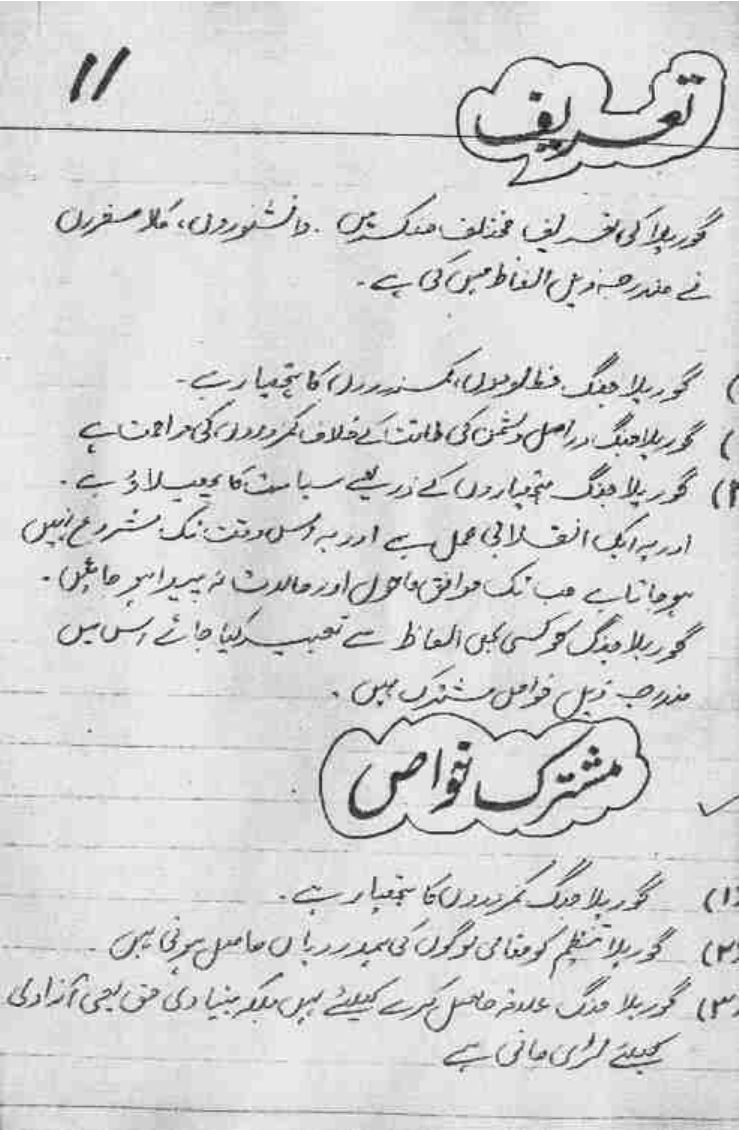 11
تعریف
گوریلا کی تعریف مختلف مفکرین، دانشوروں،
نے مندرجہ ذیل الفاظ میں کی ہے۔
) گوریلا جنگ مظلوموں، کمزوروں، کا ہتھیار ہے۔
) گوریلا جنگ دراصل دشمن کی طاقت کے خلاف کمزوروں کی مزاحمت ہے
۳) گوریلا جنگ ہتھیاروں کے ذریعے سیاست کا پھیلاؤ ہے۔
اور یہ ایک انقلابی عمل ہے اور یہ اس وقت تک شروع نہیں
ہو جاتا ہے جب تک موافق ماحول اور حالات نہ پیدا ہو جائیں۔
گوریلا جنگ کو کسی بھی الفاظ سے تعبیر کیا جائے اس میں
مندرجہ ذیل خواص مشترک ہیں۔
مشترک خواص
(۱) گوریلا جنگ کمزوروں کا ہتھیار ہے۔
(۲) گوریلا تنظیم کو مقامی لوگوں کی ہمدردیاں حاصل ہوتی ہیں۔
(۳) گوریلا جنگ علاقہ حاصل کرنے کیلئے نہیں بلکہ بنیادی حق یعنی آزادی
کیلئے لڑی جاتی ہے